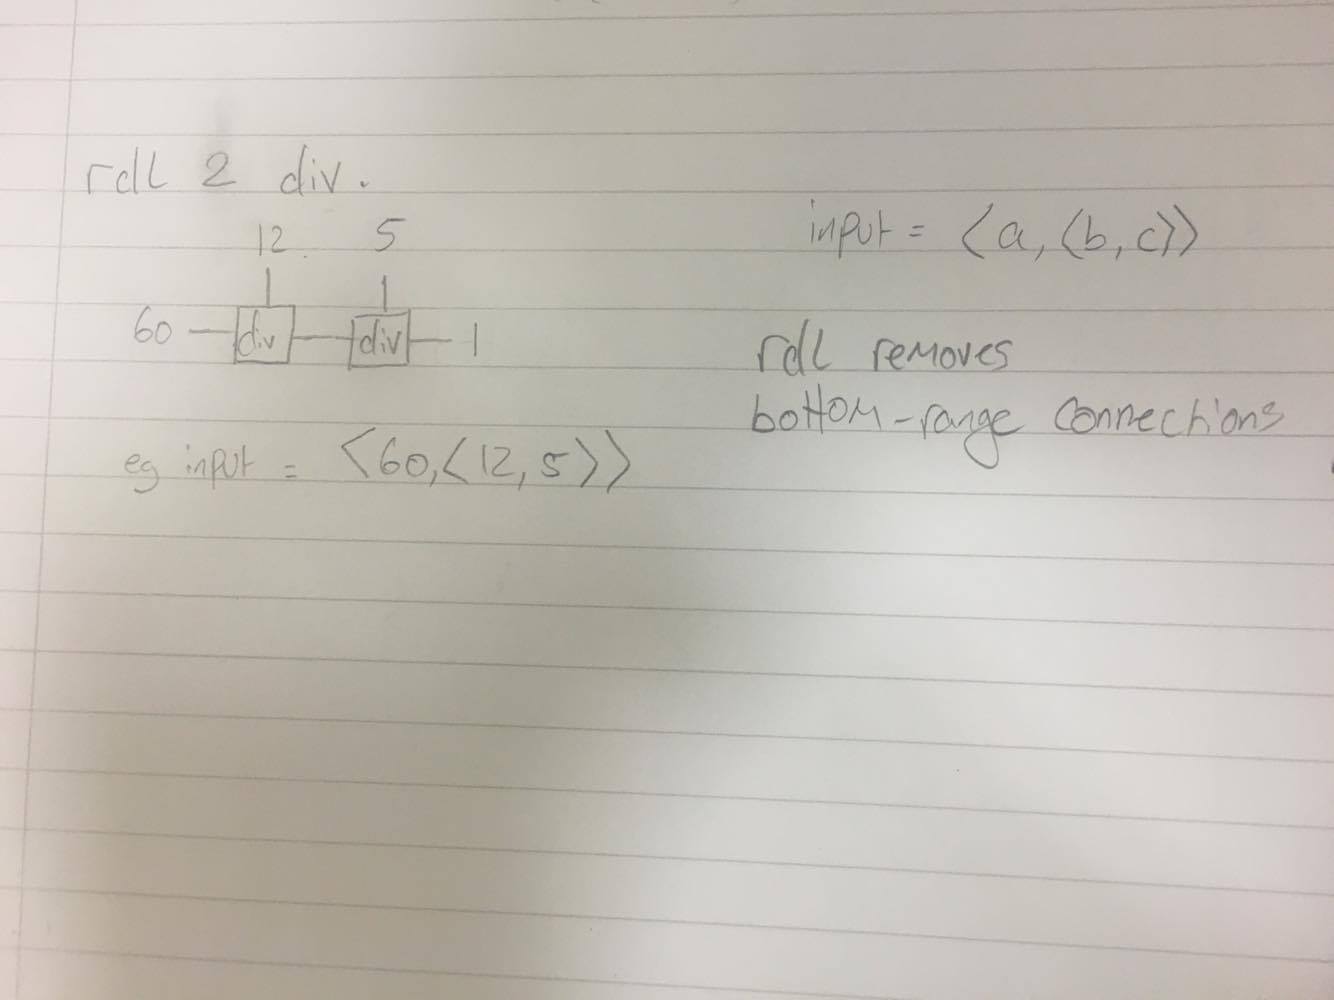 rdl 2 div.
12 5
60 div div 1
eg input = ⟨60,⟨12, 5⟩⟩
input = ⟨a, ⟨b, c⟩⟩
rdl removes
bottom-range connections